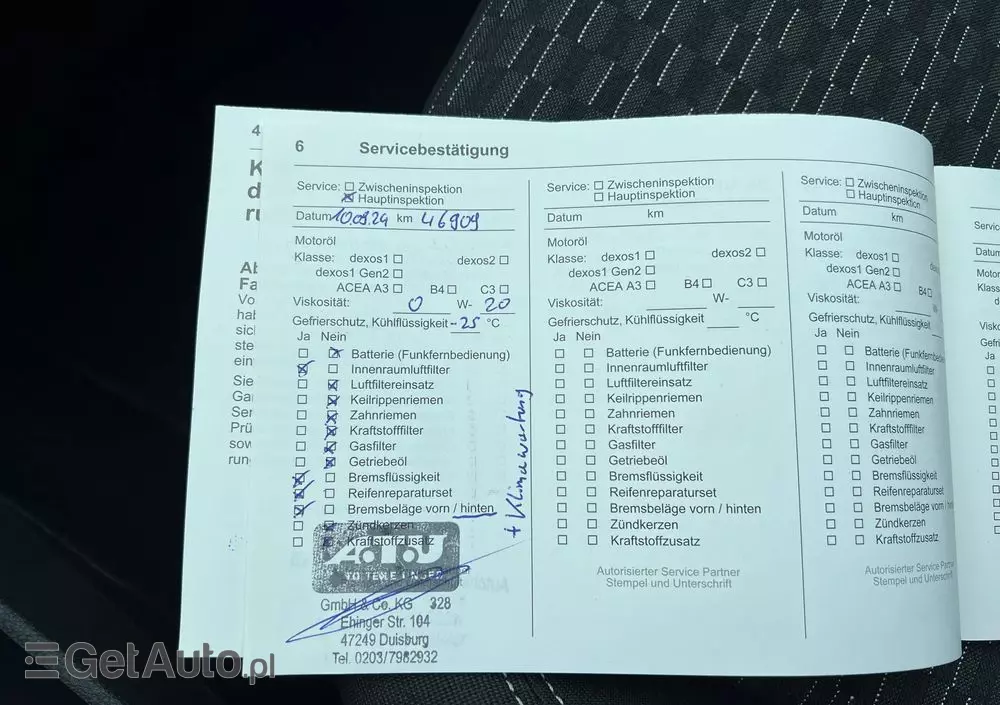 4
K
d
ru
Al
Fa
Vo
hal
sicl
ste
ein
Sie
Gar
Ser
Prü
sow
run
6 Servicebestätigung
Service: ☐ Zwischeninspektion
☒ Hauptinspektion
Datum 10.09.24 km 46909
Motoröl
Klasse: dexos1 ☐ dexos2 ☐
dexos1 Gen2 ☐
ACEA A3 ☐ B4 ☐ C3 ☐
Viskosität: 0 W- 20
Gefrierschutz, Kühlflüssigkeit -25 °C
Ja Nein
☐ ☒ Batterie (Funkfernbedienung)
☒ ☐ Innenraumluftfilter
☐ ☒ Luftfiltereinsatz
☐ ☒ Keilrippenriemen
☐ ☒ Zahnriemen
☐ ☒ Kraftstofffilter
☐ ☒ Gasfilter
☐ ☒ Getriebeöl
☒ ☐ Bremsflüssigkeit
☒ ☐ Reifenreparaturset
☒ ☐ Bremsbeläge vorn / hinten
☐ ☒ Zündkerzen
☐ ☒ Kraftstoffzusatz
+ Klimawartung
A.T.U
GmbH & Co. KG 328
Ehinger Str. 104
47249 Duisburg
Tel. 0203/7982932
Service: ☐ Zwischeninspektion
☐ Hauptinspektion
Datum km
Motoröl
Klasse: dexos1 ☐ dexos2 ☐
dexos1 Gen2 ☐
ACEA A3 ☐ B4 ☐ C3 ☐
Viskosität: W-
Gefrierschutz, Kühlflüssigkeit °C
Ja Nein
☐ ☐ Batterie (Funkfernbedienung)
☐ ☐ Innenraumluftfilter
☐ ☐ Luftfiltereinsatz
☐ ☐ Keilrippenriemen
☐ ☐ Zahnriemen
☐ ☐ Kraftstofffilter
☐ ☐ Gasfilter
☐ ☐ Getriebeöl
☐ ☐ Bremsflüssigkeit
☐ ☐ Reifenreparaturset
☐ ☐ Bremsbeläge vorn / hinten
☐ ☐ Zündkerzen
☐ ☐ Kraftstoffzusatz
Autorisierter Service Partner
Stempel und Unterschrift
Service: ☐ Zwischeninspektion
☐ Hauptinspektion
Datum km
Motoröl
Klasse: dexos1 ☐ dexos2
dexos1 Gen2 ☐
ACEA A3 ☐ B4 ☐
Viskosität: W-
Gefrierschutz, Kühlflüssigkeit
Ja Nein
☐ ☐ Batterie (Funkfernbe
☐ ☐ Innenraumluftfilter
☐ ☐ Luftfiltereinsatz
☐ ☐ Keilrippenriemen
☐ ☐ Zahnriemen
☐ ☐ Kraftstofffilter
☐ ☐ Gasfilter
☐ ☐ Getriebeöl
☐ ☐ Bremsflüssigkeit
☐ ☐ Reifenreparaturset
☐ ☐ Bremsbeläge vorn / hinten
☐ ☐ Zündkerzen
☐ ☐ Kraftstoffzusatz
Autorisierter Service Partner
Stempel und Unterschrift
Servic
Datum
Motor
Klass
Visko
Gefri
Ja
GetAuto.pl